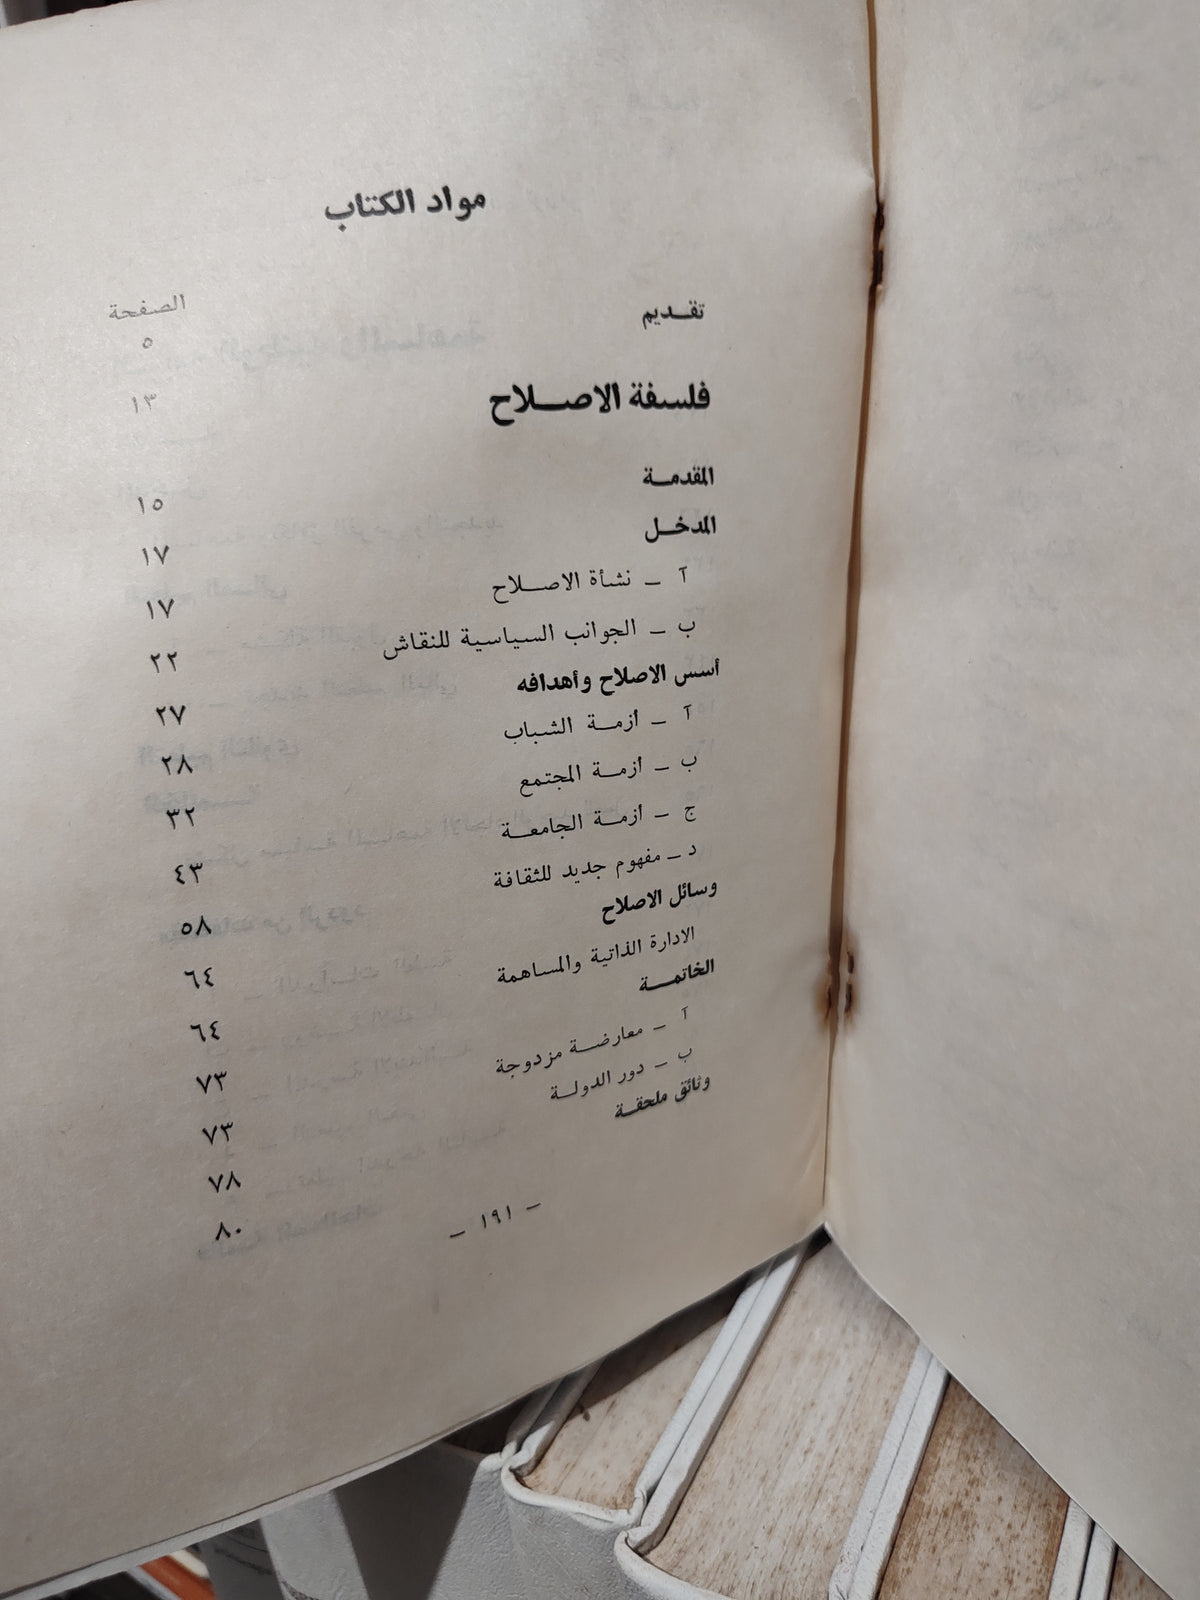 مواد الكتاب
الصفحة
تقديم ٥
فلسفة الاصلاح ١٣
المقدمة ١٥
المدخل ١٧
آ ــ نشأة الاصلاح ١٧
ب ــ الجوانب السياسية للنقاش ٢٢
أسس الاصلاح وأهدافه ٢٧
آ ــ أزمة الشباب ٢٨
ب ــ أزمة المجتمع ٣٢
ج ــ أزمة الجامعة ٤٣
د ــ مفهوم جديد للثقافة ٥٨
وسائل الاصلاح ٦٤
الادارة الذاتية والمساهمة ٦٤
الخاتمة ٧٣
آ ــ معارضة مزدوجة ٧٣
ب ــ دور الدولة ٧٨
وثائق ملحقة ٨٠
ــ ١٩١ ــ